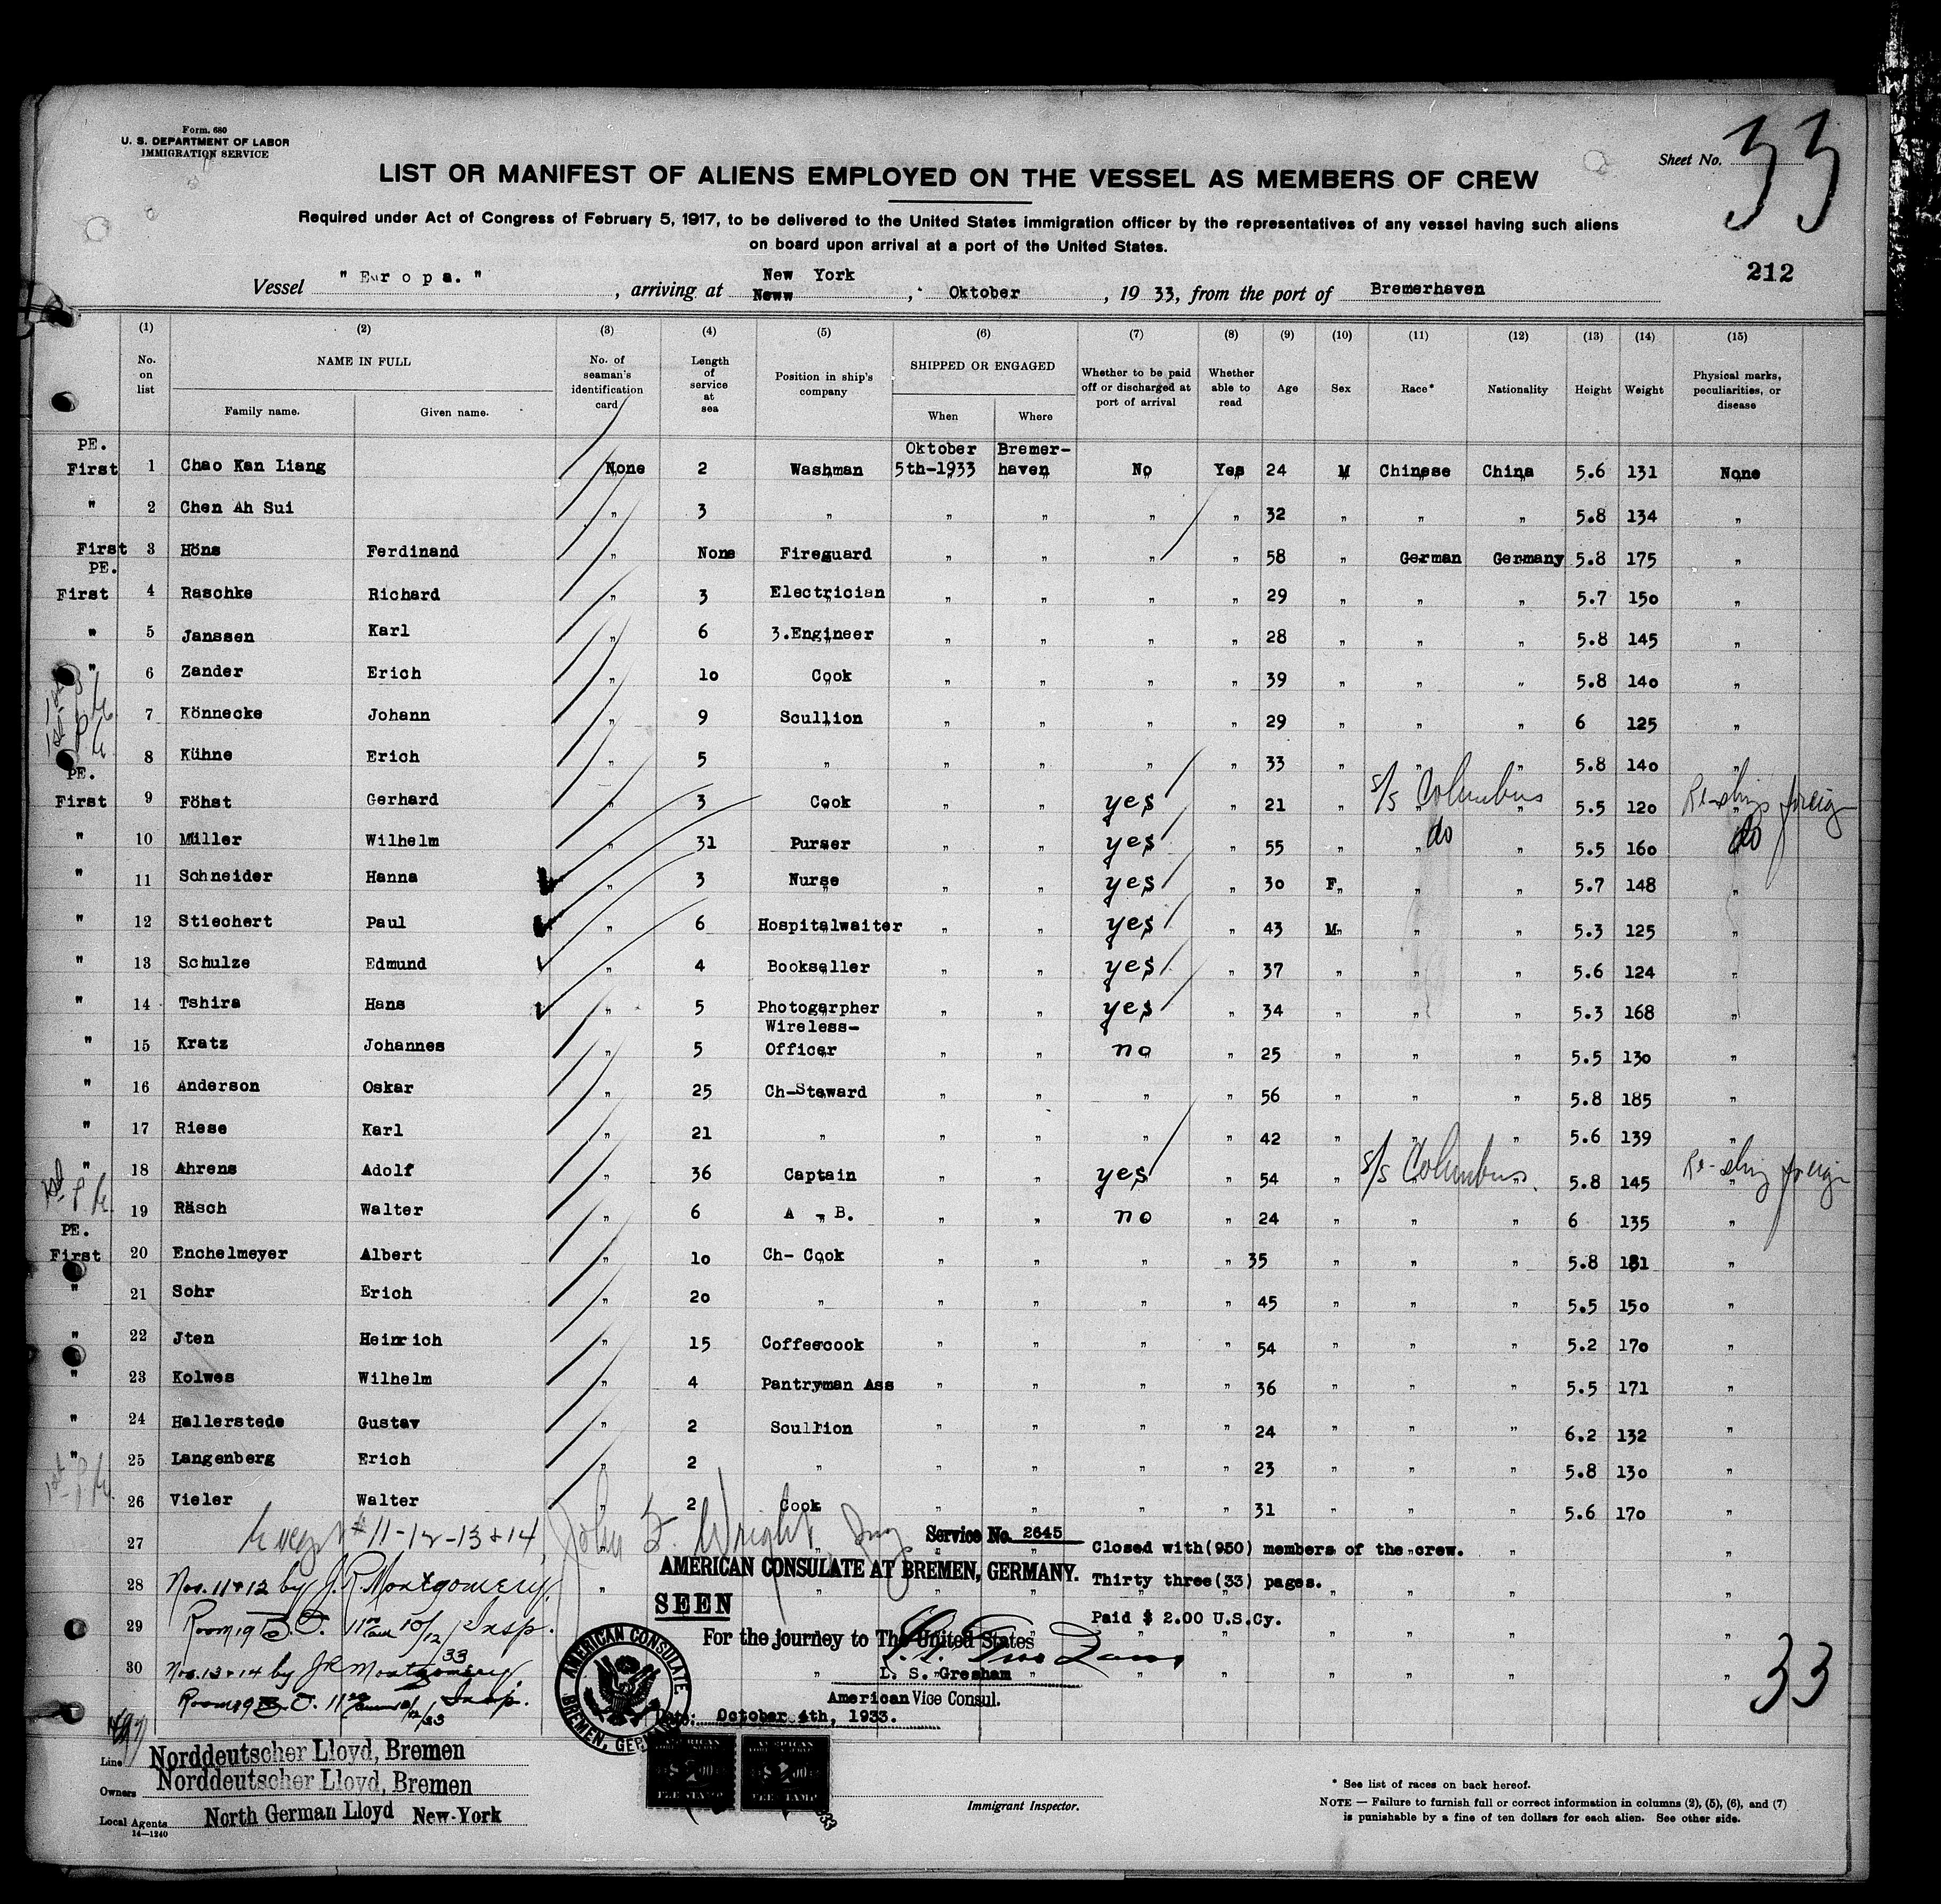 Form. 680
U. S. DEPARTMENT OF LABOR
IMMIGRATION SERVICE
Sheet No. 33
LIST OR MANIFEST OF ALIENS EMPLOYED ON THE VESSEL AS MEMBERS OF CREW
Required under Act of Congress of February 5, 1917, to be delivered to the United States immigration officer by the representatives of any vessel having such aliens
on board upon arrival at a port of the United States.
212
Vessel " Europa. " , arriving at New York Neww , Oktober , 19 33, from the port of Bremerhaven
(1) (2) (3) (4) (5) (6) (7) (8) (9) (10) (11) (12) (13) (14) (15)
No. on list NAME IN FULL Family name. Given name. No. of seaman's identification card Length of service at sea Position in ship's company SHIPPED OR ENGAGED When Where Whether to be paid off or discharged at port of arrival Whether able to read Age Sex Race* Nationality Height Weight Physical marks, peculiarities, or disease
PE. Oktober Bremer-
First 1 Chao Kan Liang None 2 Washman 5th-1933 haven No Yes 24 M Chinese China 5.6 131 None
" 2 Chen Ah Sui " 3 " " " " " 32 " " " 5.8 134 "
First 3 Höns Ferdinand " None Fireguard " " " " 58 " German Germany 5.8 175 "
PE.
First 4 Raschke Richard " 3 Electrician " " " " 29 " " " 5.7 150 "
" 5 Janssen Karl " 6 3.Engineer " " " " 28 " " " 5.8 145 "
" 6 Zander Erich " 10 Cook " " " " 39 " " " 5.8 140 "
7 Könnecke Johann " 9 Scullion " " " " 29 " " " 6 125 "
8 Kühne Erich " 5 " " " " " 33 " " " 5.8 140 "
PE.
First 9 Föhst Gerhard " 3 Cook " " yes " 21 " s/s Columbus " 5.5 120 Re-ship foreign
" 10 Müller Wilhelm " 31 Purser " " yes " 55 " do " 5.5 160 do
" 11 Schneider Hanna 3 Nurse " " yes " 30 F " " 5.7 148 "
" 12 Stiechert Paul " 6 Hospitalwaiter " " yes " 43 M " " 5.3 125 "
" 13 Schulze Edmund " 4 Bookseller " " yes " 37 " " " 5.6 124 "
" 14 Tshira Hans " 5 Photogarpher " " yes " 34 " " " 5.3 168 "
Wireless-
" 15 Kratz Johannes " 5 Officer " " no " 25 " " " 5.5 130 "
" 16 Anderson Oskar " 25 Ch-Steward " " " " 56 " " " 5.8 185 "
" 17 Riese Karl " 21 " " " " " 42 " " " 5.6 139 "
" 18 Ahrens Adolf " 36 Captain " " yes " 54 " s/s Columbus. " 5.8 145 Re-ship foreign
19 Räsch Walter " 6 A " B. " " no " 24 " " " 6 135 "
PE.
First 20 Enchelmeyer Albert " 10 Ch- Cook " " " " 35 " " " 5.8 181 "
" 21 Sohr Erich " 20 " " " " " 45 " " " 5.5 150 "
" 22 Jten Heinrich " 15 Coffeecook " " " " 54 " " " 5.2 170 "
" 23 Kolwes Wilhelm " 4 Pantryman Ass " " " " 36 " " " 5.5 171 "
" 24 Hallerstede Gustav " 2 Scullion " " " " 24 " " " 6.2 132 "
" 25 Langenberg Erich " 2 " " " " " 23 " " " 5.8 130 "
26 Vieler Walter " 2 Cook " " " " 31 " " " 5.6 170 "
27 # 11-12-13+14 John Wright Service No. 2645 Closed with(950) members of the crew.
AMERICAN CONSULATE AT BREMEN, GERMANY.
28 Nos. 11+12 by J.R. Montgomery Thirty three(33) pages.
SEEN
29 Room 19 10/12/33 Insp. Paid $ 2.00 U.S.Cy.
For the journey to The United States
30 Nos. 13+14 by JR Montgomery L. S. Gresham 33
Room 19 10/12/33 Insp. American Vice Consul.
Date: October 4th, 1933.
AMERICAN CONSULATE BREMEN, GERMANY
Line Norddeutscher Lloyd, Bremen
Owners Norddeutscher Lloyd, Bremen
Local Agents North German Lloyd New-York
14-1240
Immigrant Inspector.
* See list of races on back hereof.
NOTE — Failure to furnish full or correct information in columns (2), (5), (6), and (7)
is punishable by a fine of ten dollars for each alien. See other side.